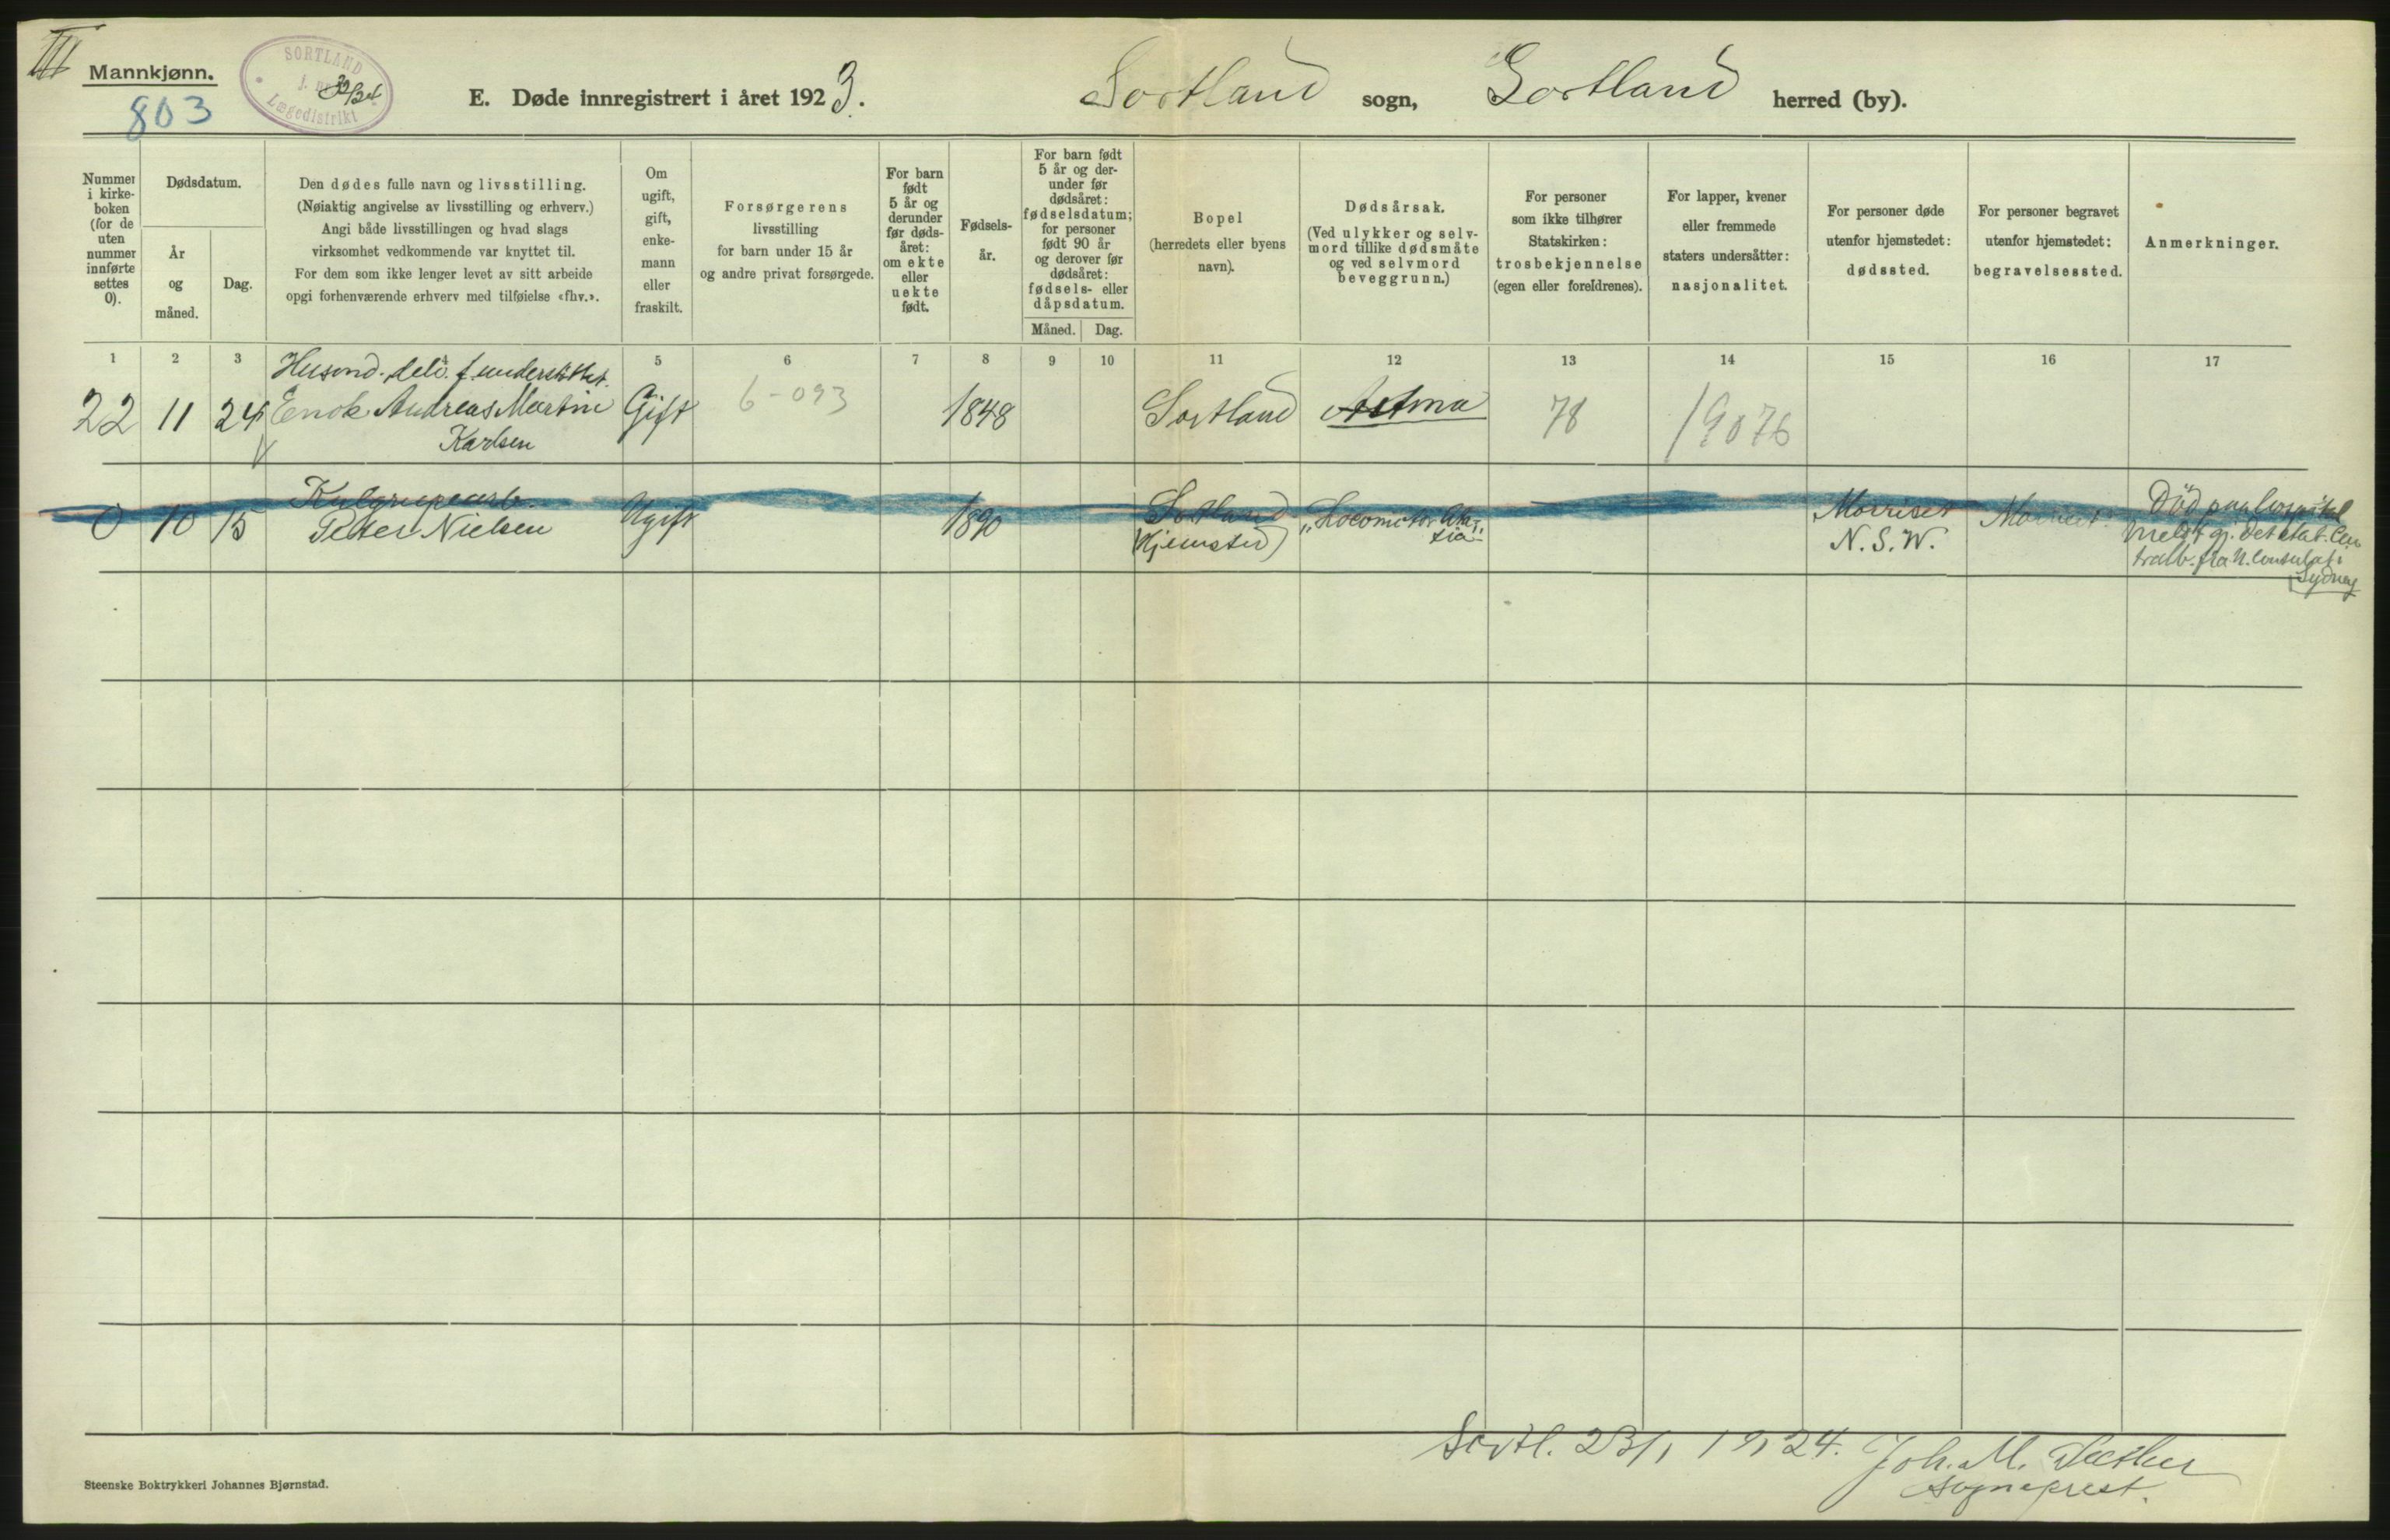 III
Mannkjønn.
803
SORTLAND
J. nr. 32/24
Lægedistrikt
E. Døde innregistrert i året 1923.
Sortland sogn, Sortland herred (by).
Nummer
i kirke-
boken
(for de
uten
nummer
innførte
settes
0).
Dødsdatum.
År
og
måned.
Dag.
Den dødes fulle navn og livsstilling.
(Nøiaktig angivelse av livsstilling og erhverv.)
Angi både livsstillingen og hvad slags
virksomhet vedkommende var knyttet til.
For dem som ikke lenger levet av sitt arbeide
opgi forhenværende erhverv med tilføielse «fhv.».
Om
ugift,
gift,
enke-
mann
eller
fraskilt.
Forsørgerens
livsstilling
for barn under 15 år
og andre privat forsørgede.
For barn
født
5 år og
derunder
før døds-
året:
om ekte
eller
uekte
født.
Fødsels-
år.
For barn født
5 år og der-
under før
dødsåret:
fødselsdatum;
for personer
født 90 år
og derover før
dødsåret:
fødsels- eller
dåpsdatum.
Måned.
Dag.
Bopel
(herredets eller byens
navn).
Dødsårsak.
(Ved ulykker og selv-
mord tillike dødsmåte
og ved selvmord
beveggrunn.)
For personer
som ikke tilhører
Statskirken:
trosbekjennelse
(egen eller foreldrenes).
For lapper, kvener
eller fremmede
staters undersåtter:
nasjonalitet.
For personer døde
utenfor hjemstedet:
dødssted.
For personer begravet
utenfor hjemstedet:
begravelsessted.
Anmerkninger.
1 2 3 5 6 7 8 9 10 11 12 13 14 15 16 17
Husmd. delv. f. understøttet.
22 11 24 Enok Andreas Martin Gift 6-093 1848 Sortland Astma 78 19076
Karlsen
0 10 15 Peter Nielsen Ugift 1890 Sortland "Locomotor Ata- Morriset Morriset Død paa hospital
(Hjemsted) xia" N. S. W. Meldt gj. Det Stat. Cen
tralb. fra N. Consulat i
Sydney
Sortl. 23/1 1924. Joh. M.
Sogneprest.
Steenske Boktrykkeri Johannes Bjørnstad.